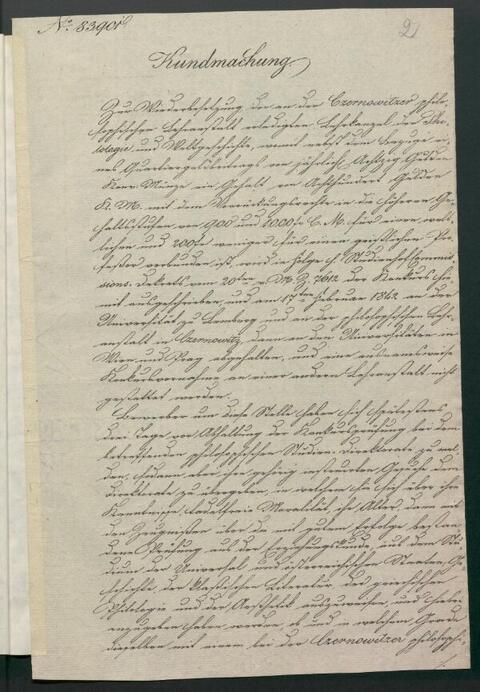 No. 83901
2
Kundmachung
Zur Wiederbesetzung der an der Czernowitzer philo-
sophischen Lehranstalt erledigten Lehrkanzel der Phi-
lologie und Weltgeschichte, womit nebst dem Bezuge ei-
nes Quartiergeldbeitrags von jährlich Achtzig Gulden
Konv. Münze ein Gehalt von Achthundert Gulden
K. M. mit dem Vorrückungsrechte in die höheren Ge-
haltsstufen von 900 und 1000 f C. M. für einen welt-
lichen und 200 f weniger für einen geistlichen Pro-
fessor verbunden ist, wird in Folge h. Studienhofkommis-
sions-Dekrets vom 20ten v. M. Z. 7612 der Konkurs hie-
mit ausgeschrieben, und am 17ten Februar 1842 an der
Universität zu Lemberg und an der philosophischen Lehr-
anstalt in Czernowitz, dann an den Universitäten in
Wien und Prag abgehalten, und eine ausnahmsweise
Konkursvornahme an einer andern Lehranstalt nicht
gestattet werden.
Bewerber um diese Stelle haben sich spätestens
drei Tage vor Abhaltung der Konkursprüfung bei dem
betreffenden philosophischen Studien-Direktorate zu mel-
den, sodann aber ihre gehörig instruirten Gesuche dem
Direktorate zu übergeben, in welchem sie sich über ihre
Kenntnisse, tadelfreie Moralität, ihr Alter, dann mit
den Zeugnissen über die mit gutem Erfolge bestan-
dene Prüfung aus der Erziehungskunde, aus dem Stu-
dium der Universal- und österreichischen Staaten-Ge-
schichte, der klassischen Literatur, der griechischen
Philologie und der Aesthetik auszuweisen, und dabei
anzugeben haben werden, ob und in welchem Grade
dieselben mit einem bei der Czernowitzer philosophi-